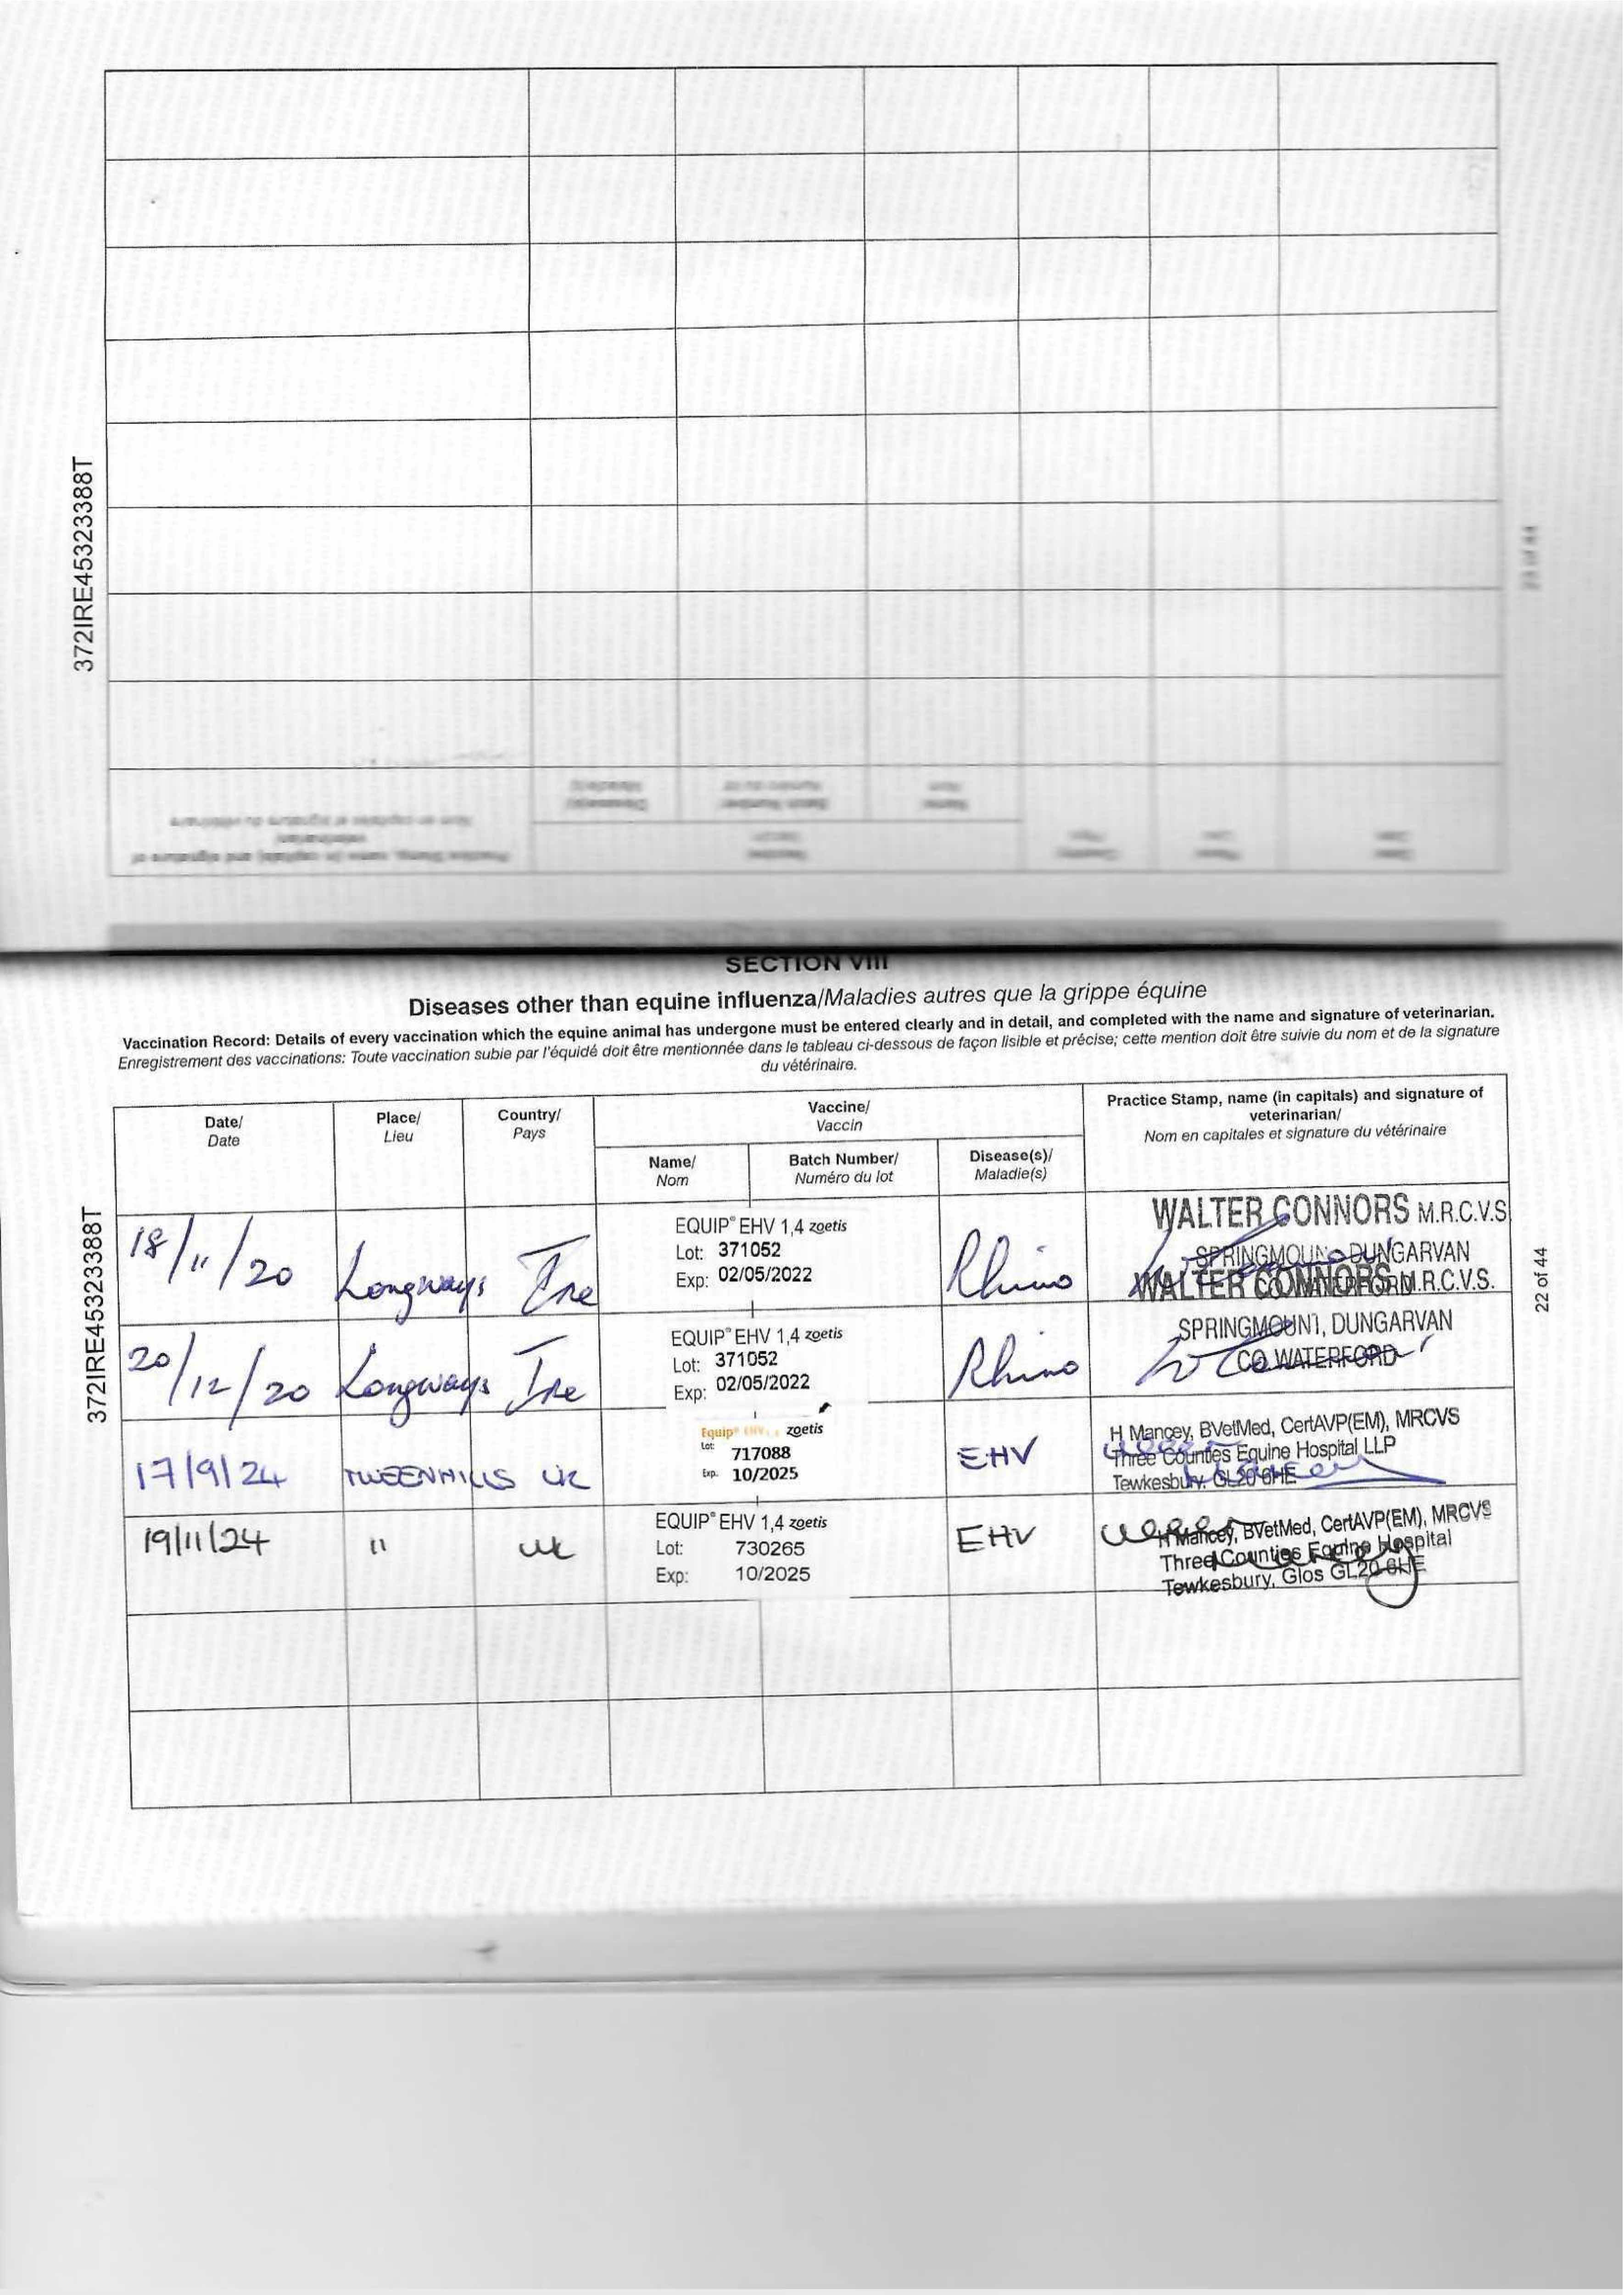 372IRE45323388T
23 of 44
SECTION VIII
Diseases other than equine influenza/Maladies autres que la grippe équine
Vaccination Record: Details of every vaccination which the equine animal has undergone must be entered clearly and in detail, and completed with the name and signature of veterinarian.
Enregistrement des vaccinations: Toute vaccination subie par l'équidé doit être mentionnée dans le tableau ci-dessous de façon lisible et précise; cette mention doit être suivie du nom et de la signature
du vétérinaire.
Date/
Date
Place/
Lieu
Country/
Pays
Vaccine/
Vaccin
Name/
Nom
Batch Number/
Numéro du lot
Disease(s)/
Maladie(s)
Practice Stamp, name (in capitals) and signature of
veterinarian/
Nom en capitales et signature du vétérinaire
18/11/20
Longways
Ire
EQUIP® EHV 1,4 zoetis
Lot: 371052
Exp: 02/05/2022
Rhino
WALTER CONNORS M.R.C.V.S
SPRINGMOUNT, DUNGARVAN
CO. WATERFORD
20/12/20
Longways
Ire
EQUIP® EHV 1,4 zoetis
Lot: 371052
Exp: 02/05/2022
Rhino
WALTER CONNORS M.R.C.V.S.
SPRINGMOUNT, DUNGARVAN
CO. WATERFORD
17/9/24
TWEENHILLS
UK
Equip® EHV 1,4 zoetis
Lot: 717088
Exp. 10/2025
EHV
H Mancey, BVetMed, CertAVP(EM), MRCVS
Three Counties Equine Hospital LLP
Tewkesbury. GL20 6HE
19/11/24
"
UK
EQUIP® EHV 1,4 zoetis
Lot: 730265
Exp: 10/2025
EHV
H Mancey, BVetMed, CertAVP(EM), MRCVS
Three Counties Equine Hospital
Tewkesbury, Glos GL20 6HE
372IRE45323388T
22 of 44